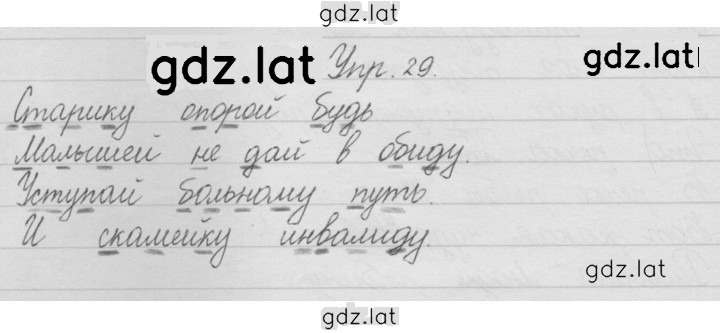 gdz.lat
gdz.lat Упр. 29. gdz.lat
Старику опорой будь
Малышей не дай в обиду.
Уступай больному путь.
И скамейку инвалиду.
gdz.lat
gdz.lat